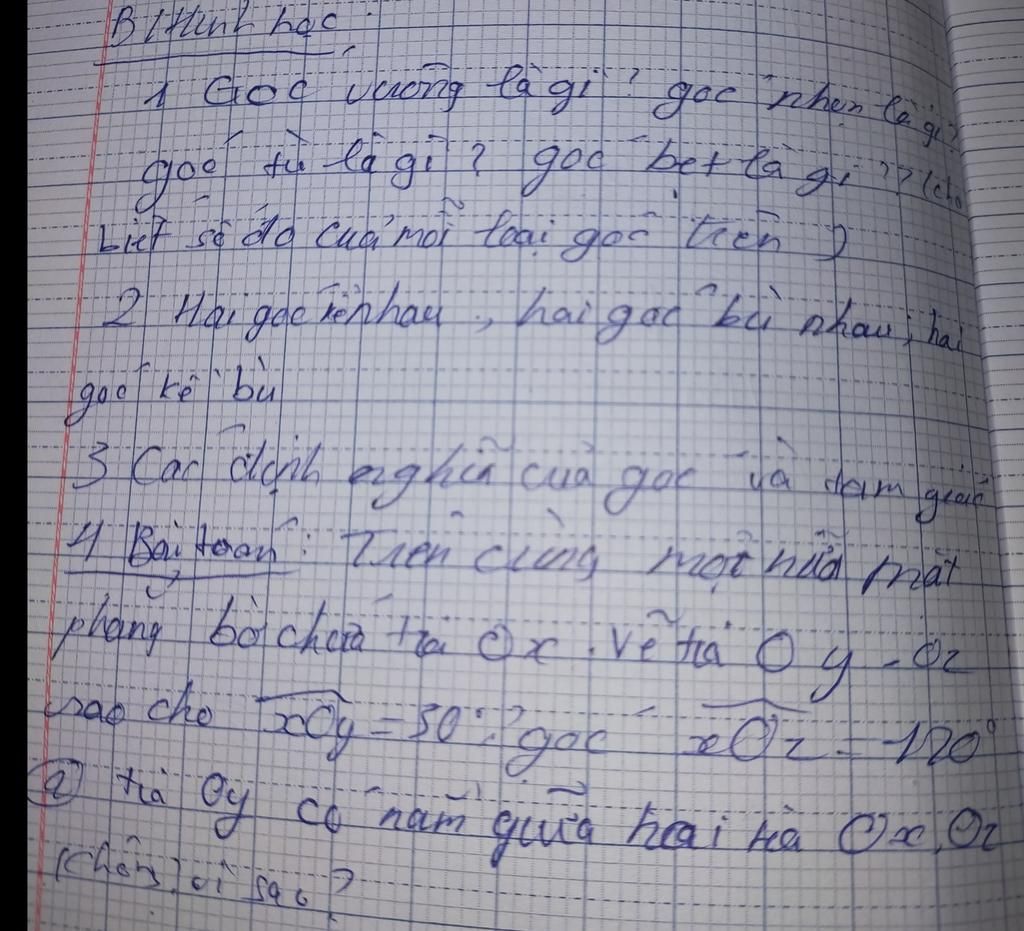 B/Hình học
1 Góc vuông là gì? góc nhọn là gì?
góc tù là gì? góc bẹt là gì?? (cho
biết số đo của mỗi loại góc trên)
2 Hai góc kề nhau, hai góc bù nhau, hai
góc kề bù
3 Các định nghĩa của góc và tam giác
4 Bài toán: Trên cùng một nửa mặt
phẳng bờ chứa tia Ox. Vẽ tia Oy - Oz
sao cho xOy = 50°; góc xOz = 120°
a) tia Oy có nằm giữa hai tia Ox, Oz
không, vì sao?